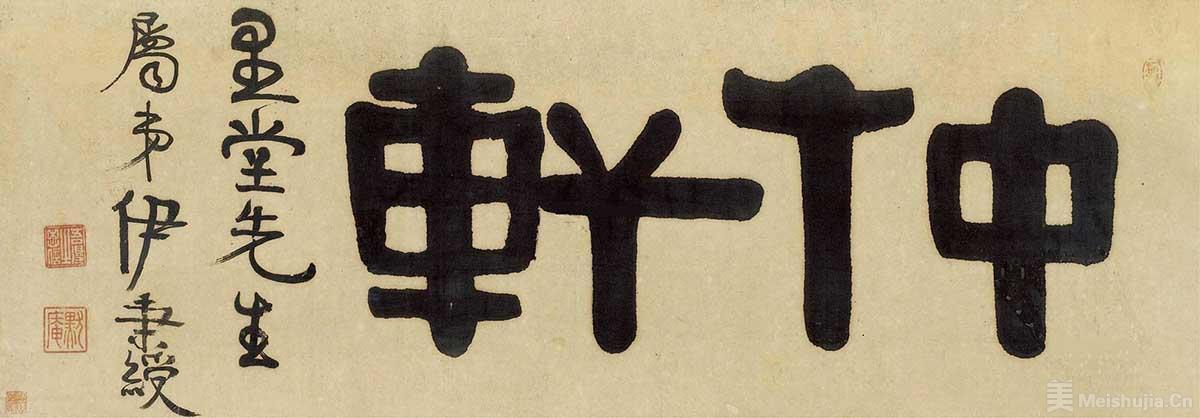 仲軒
里堂先生
屬弟伊秉綬
默庵
美 Meishujia.Cn